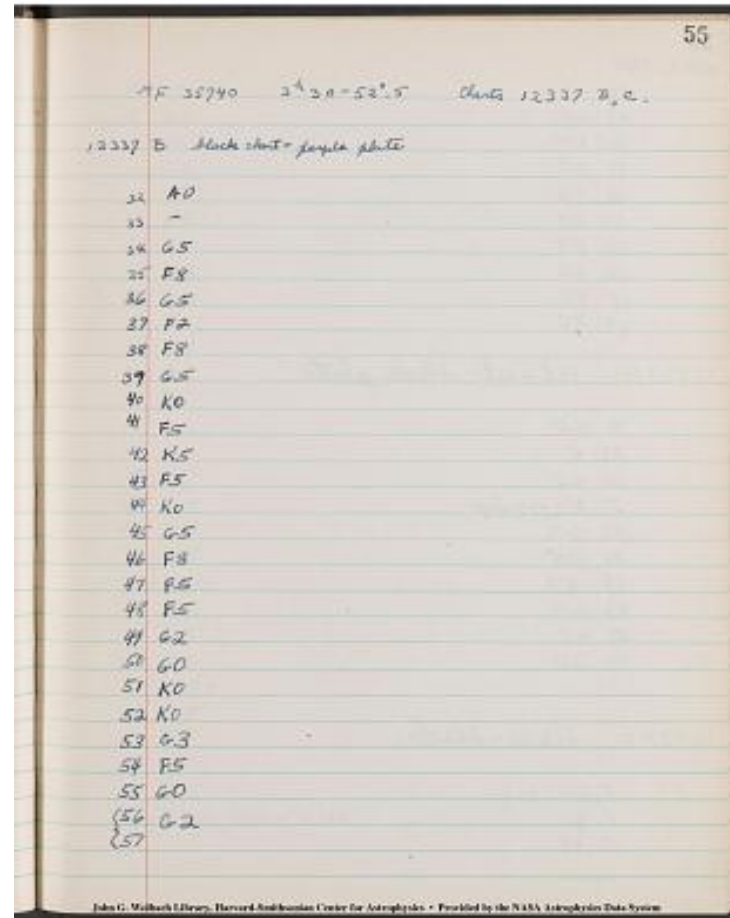 55
MF 35740 2h30 -52°.5 Charts 12337 B, C.
12337 B black chart = purple plate
32 A0
33 -
34 G5
35 F8
36 G5
37 F2
38 F8
39 G5
40 K0
41 F5
42 K5
43 F5
44 K0
45 G5
46 F8
47 F5
48 F5
49 G2
50 G0
51 K0
52 K0
53 G3
54 F5
55 G0
{56 G2
{57
John G. Wolbach Library, Harvard-Smithsonian Center for Astrophysics • Provided by the NASA Astrophysics Data System